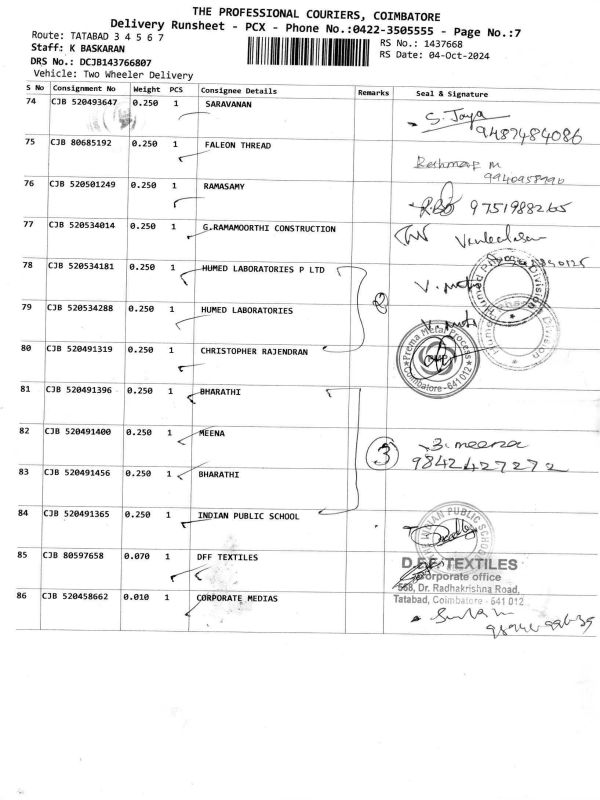 THE PROFESSIONAL COURIERS, COIMBATORE
Delivery Runsheet - PCX - Phone No.:0422-3505555 - Page No.:7
Route: TATABAD 3 4 5 6 7
RS No.: 1437668
Staff: K BASKARAN
RS Date: 04-Oct-2024
DRS No.: DCJB143766807
Vehicle: Two Wheeler Delivery
S No Consignment No Weight PCS Consignee Details Remarks Seal & Signature
74 CJB 520493647 0.250 1 SARAVANAN
S. Jaya
9487484086
75 CJB 80685192 0.250 1 FALEON THREAD
9940958990
76 CJB 520501249 0.250 1 RAMASAMY
9751988265
77 CJB 520534014 0.250 1 G.RAMAMOORTHI CONSTRUCTION
78 CJB 520534181 0.250 1 HUMED LABORATORIES P LTD
79 CJB 520534288 0.250 1 HUMED LABORATORIES
80 CJB 520491319 0.250 1 CHRISTOPHER RAJENDRAN
Prema Metal Process
Coimbatore - 641 012
81 CJB 520491396 0.250 1 BHARATHI
82 CJB 520491400 0.250 1 MEENA
3 3. meena
9842427272
83 CJB 520491456 0.250 1 BHARATHI
84 CJB 520491365 0.250 1 INDIAN PUBLIC SCHOOL
THE INDIAN PUBLIC SCHOOL
85 CJB 80597658 0.070 1 DFF TEXTILES
DFF TEXTILES
Corporate office
568, Dr. Radhakrishna Road,
Tatabad, Coimbatore - 641 012
86 CJB 520458662 0.010 1 CORPORATE MEDIAS